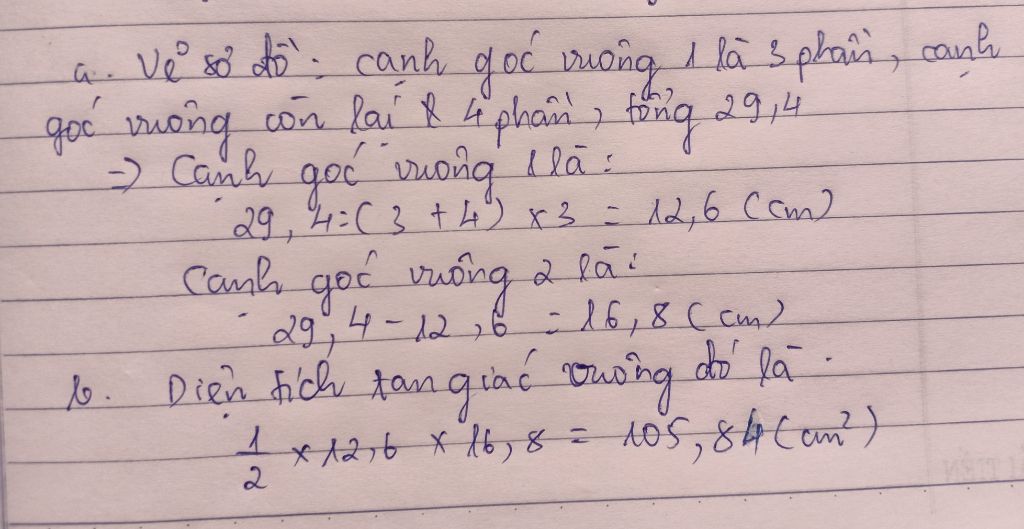 a. Vẽ sơ đồ: cạnh góc vuông 1 là 3 phần, cạnh
góc vuông còn lại là 4 phần, tổng 29,4
=> Cạnh góc vuông 1 là:
29,4:(3+4) x 3 = 12,6 (cm)
Cạnh góc vuông 2 là:
29,4 - 12,6 = 16,8 (cm)
b. Diện tích tam giác vuông đó là.
1/2 x 12,6 x 16,8 = 105,84 (cm²)